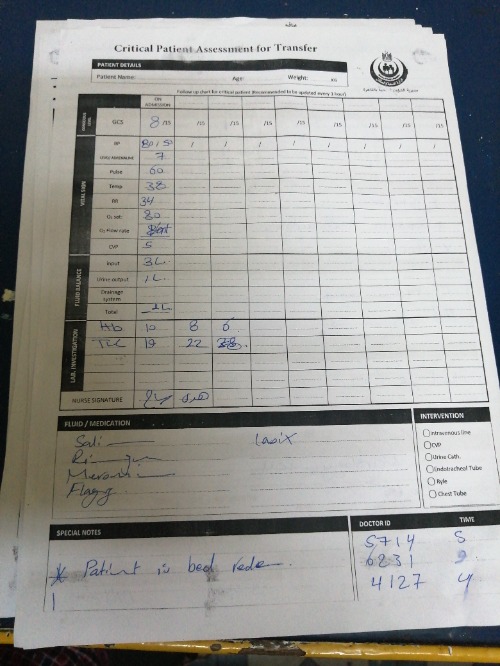 Critical Patient Assessment for Transfer
PATIENT DETAILS
Patient Name: Age: Weight: KG
Follow up chart for critical patient (Recommended to be updated every 1 hour)
ON ADMISSION
GCS 8/15 /15 /15 /15 /15 /15 /15 /15
VITAL SIGN
BP 80/50 / / / / / / /
7
Pulse 60
Temp 38
RR 34
O₂ sat: 80
O₂ Flow rate
CVP 5
FLUID BALANCE
Input 3L
Urine output 1L
Drainage system
Total
LAB. INVESTIGATION
Hb 10 8 6
TLC 19 22
NURSE SIGNATURE
FLUID / MEDICATION
Lasix
Flagyl
INTERVENTION
Intravenous line
CVP
Urine Cath.
Endotracheal Tube
Ryle
Chest Tube
SPECIAL NOTES
* Patient is bed
DOCTOR ID TIME
5714 5
6231 9
4127 4